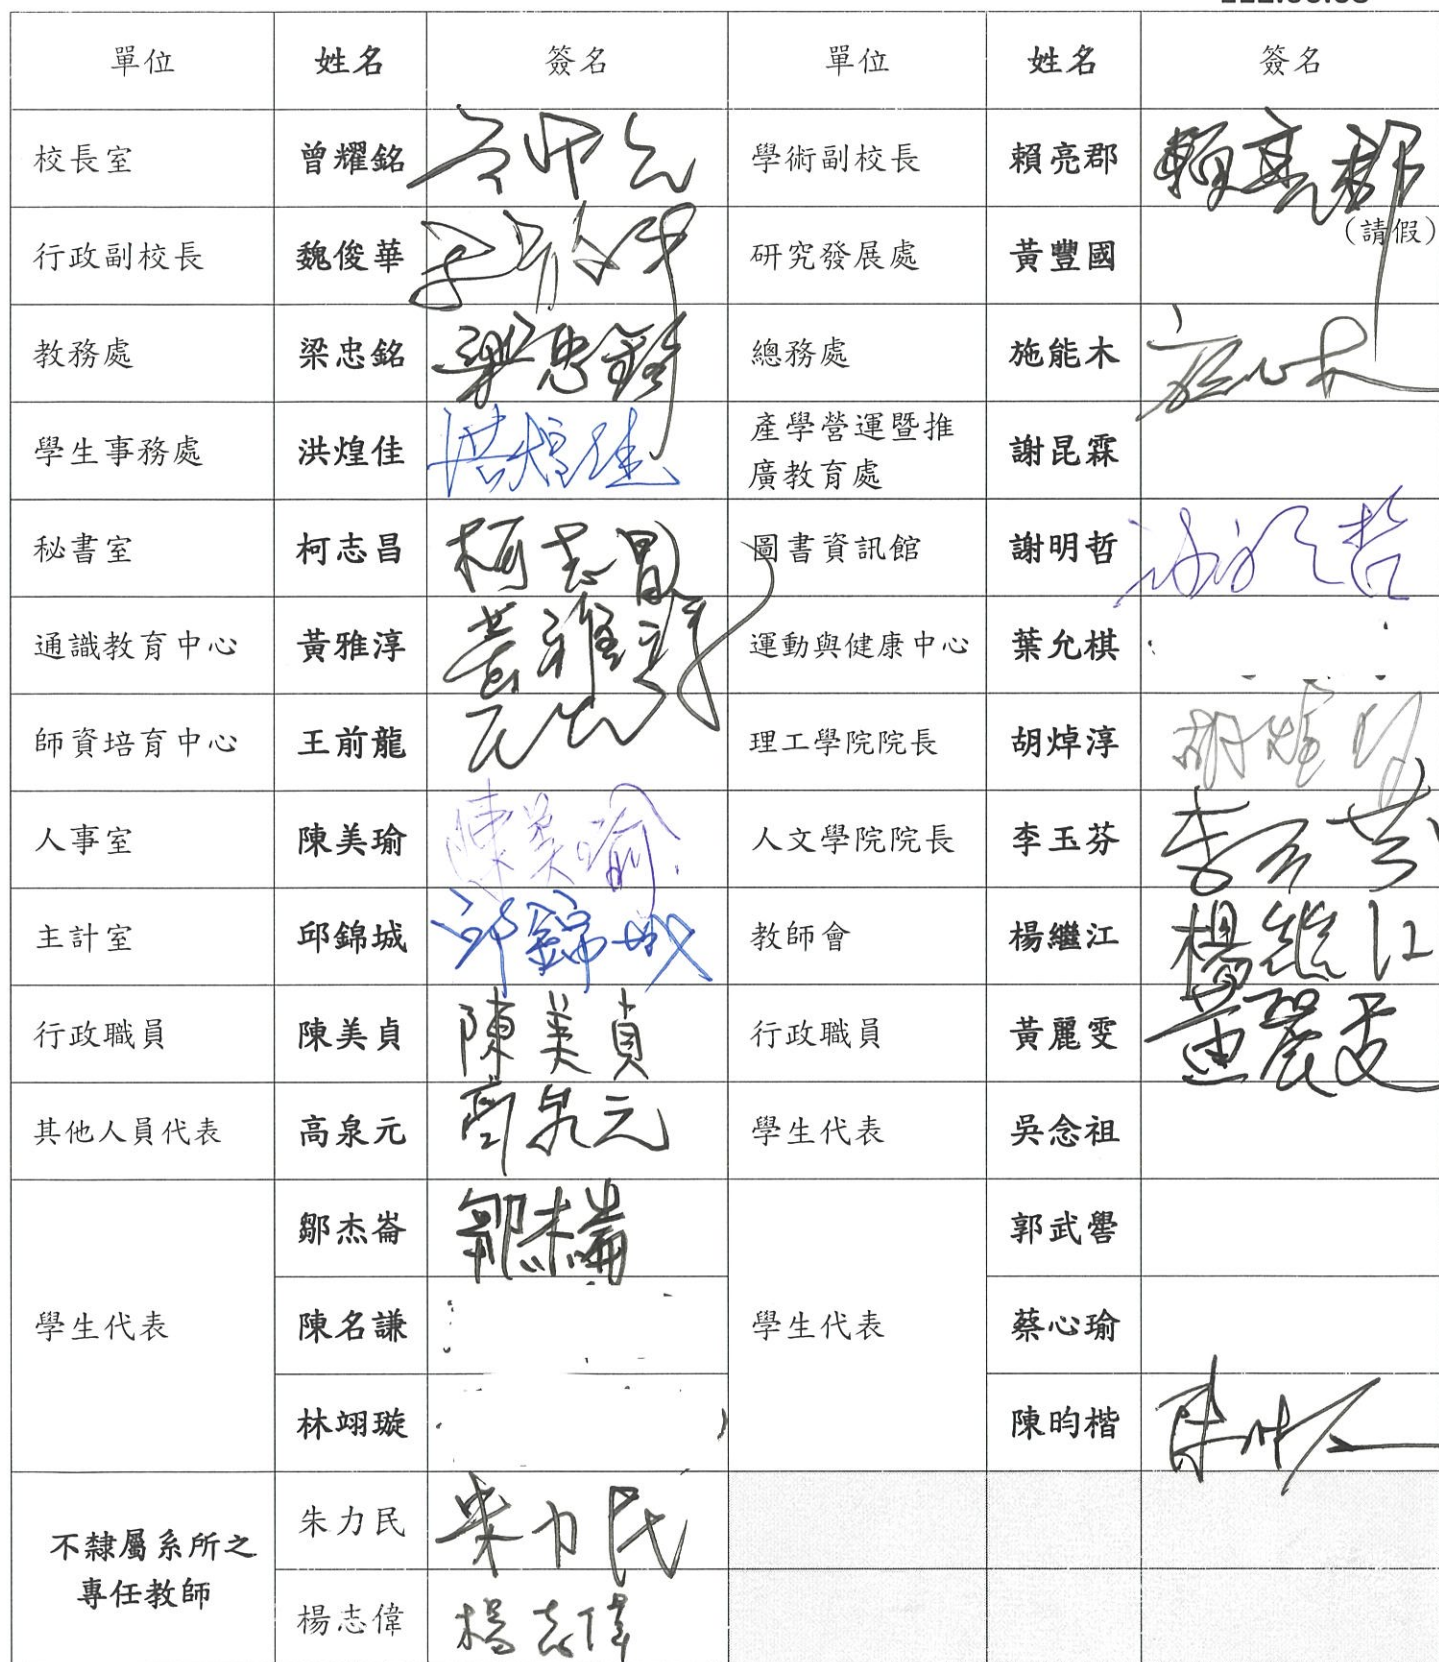 單位 姓名 簽名 單位 姓名 簽名
校長室 曾耀銘 學術副校長 賴亮郡 賴亮郡
行政副校長 魏俊華 研究發展處 黃豐國 (請假)
教務處 梁忠銘 梁忠銘 總務處 施能木 施能木
學生事務處 洪煌佳 洪煌佳 產學營運暨推
廣教育處 謝昆霖
秘書室 柯志昌 柯志昌 圖書資訊館 謝明哲 謝明哲
通識教育中心 黃雅淳 黃雅淳 運動與健康中心 葉允棋
師資培育中心 王前龍 理工學院院長 胡焯淳 胡焯淳
人事室 陳美瑜 陳美瑜 人文學院院長 李玉芬 李玉芬
主計室 邱錦城 邱錦城 教師會 楊繼江 楊繼江
行政職員 陳美貞 陳美貞 行政職員 黃麗雯 黃麗雯
其他人員代表 高泉元 高泉元 學生代表 吳念祖
鄒杰崙 鄒杰崙 郭武罍
學生代表 陳名謙 學生代表 蔡心瑜
林翊璇 陳昀楷
不隸屬系所之
專任教師
朱力民 朱力民
楊志偉 楊志偉